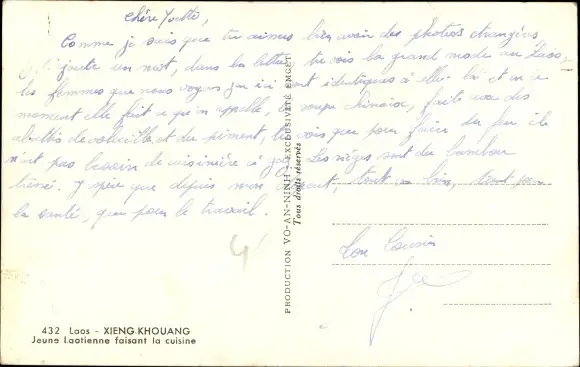 Chère Yvette,
Comme je sais que tu aimes bien avoir des photos étrangères,
j'ajoute un mot, dans la lettre, tu vois la grand mode au Laos,
les femmes que nous voyons ici sont identiques à elle. Ici et en ce
moment elle fait ce qu'on appelle, la soupe chinoise, faite avec des
abattis de volaille et du piment, tu vois que pour faire du feu ils
n'ont pas besoin de cuisinière à gaz. Les sièges sont du bambou
tréssé. J'espère que depuis mon départ, tout va bien, tant pour
la santé, que pour le travail.
Ton Cousin
PRODUCTION VO-AN-NINH - EXCLUSIVITÉ EMCET
Tous droits réservés
432 Laos - XIENG-KHOUANG
Jeune Laotienne faisant la cuisine